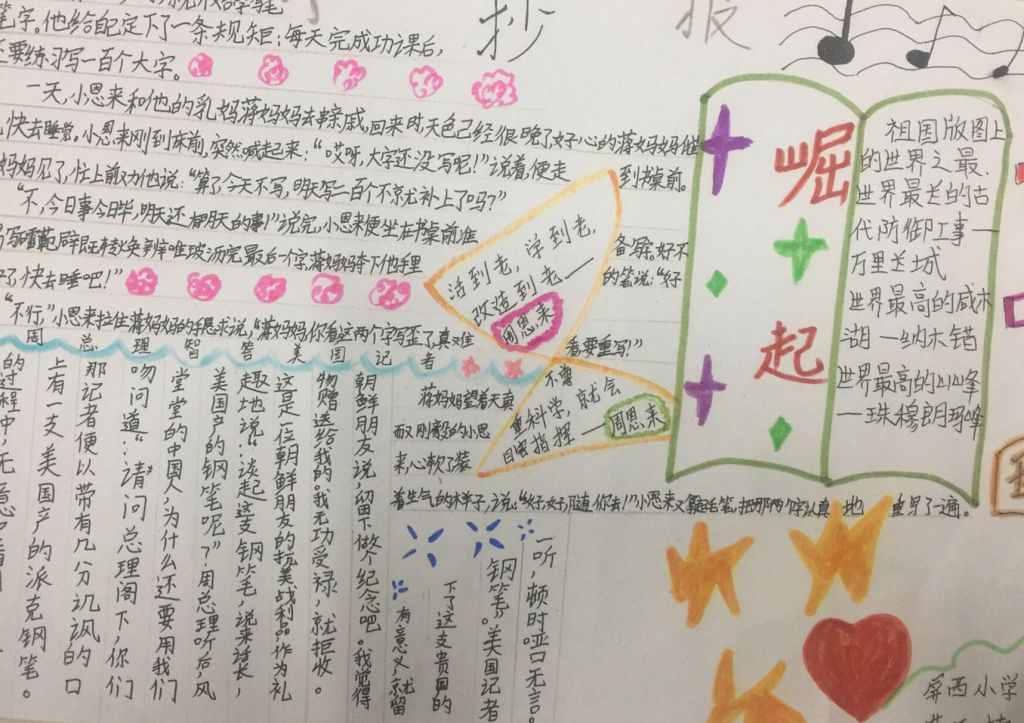 抄 报
笔字。他给自己定下了一条规矩：每天完成功课后，
还要练习写一百个大字。
一天，小恩来和他的乳妈蒋妈妈去串亲戚，回来时天色已经很晚了好心的蒋妈妈催
快去睡觉。小恩来刚到床前，突然喊起来：“哎呀，大字还没写呢！”说着，便走到书桌前。
妈妈见了，忙上前劝他说：“算了今天不写，明天写二百个不就补上了吗？”
“不，今日事今日毕，明天还有明天的事！”说完，小恩来便坐在书桌前准
备写。好不
完最后一个字
的笔说：“好
了快去睡吧！”
“不行，”小恩来拉住蒋妈妈的手恳求说，“蒋妈妈你看这两个字写歪了，真难
看要重写！”
蒋妈妈望着天真
而又刚毅的小恩
来心软了装
着生气的样子，说：“好好好随你去！”小恩来又拿起毛笔，把那两个字认真地重写了一遍。
活到老，学到老，
改造到老——
周恩来
不尊
重科学，就会
瞎指挥——
周恩来
崛起
祖国版图上
的世界之最.
世界最长的古
代防御工事—
万里长城
世界最高的咸水
湖—纳木错
世界最高的山峰
—珠穆朗玛峰
周总理智答美国记者
的过程中，无意中看到
上有一支美国产的派克钢笔。
那记者便以带有几分讥讽的口
吻问道：“请问总理阁下，你们
堂堂的中国人，为什么还要用我们
美国产的钢笔呢？”周总理听后，风
趣地说：“谈起这支钢笔，说来话长，
这是一位朝鲜朋友的抗美战利品作为礼
物赠送给我的。我无功受禄，就拒收。
朝鲜朋友说，留下做个纪念吧。我觉得
有意义，就留
下了这支贵国的
钢笔”。美国记者
一听，顿时哑口无言。
屏西小学